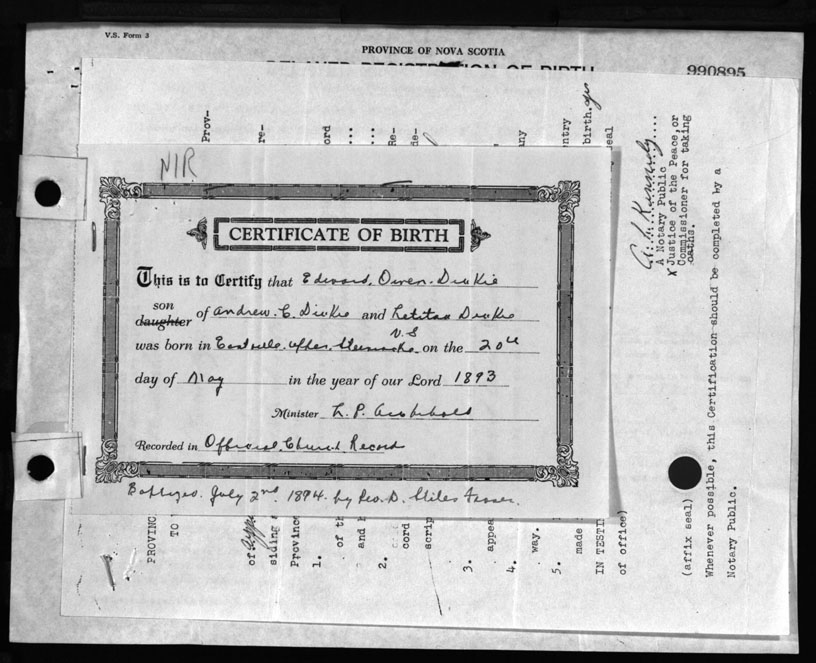 V.S. Form 3
PROVINCE OF NOVA SCOTIA
DELAYED REGISTRATION OF BIRTH
990895
NIR
CERTIFICATE OF BIRTH
This is to Certify that Edward Owen Dickie
son
daughter of Andrew C Dickie and Dickie
N.S
was born in Eastville Upper on the 20th
day of May in the year of our Lord 1893
Minister L. P. Archibald
Recorded in Official Church Record
Baptized July 2nd 1894 by Rev. D. Stiles Fraser.
Prov-
re-
ord
...
...
Re-
de-
any
entry
birth.
seal
A Notary Public
X Justice of the Peace or
Commissioner for taking
oaths.
PROVINC
TO
of
siding
Province
1. of th
and
2. cord
scrip
3. appea
4. way.
5. made
IN TESTI
of office)
(affix seal)
Whenever possible, this Certification should be completed by a
Notary Public.